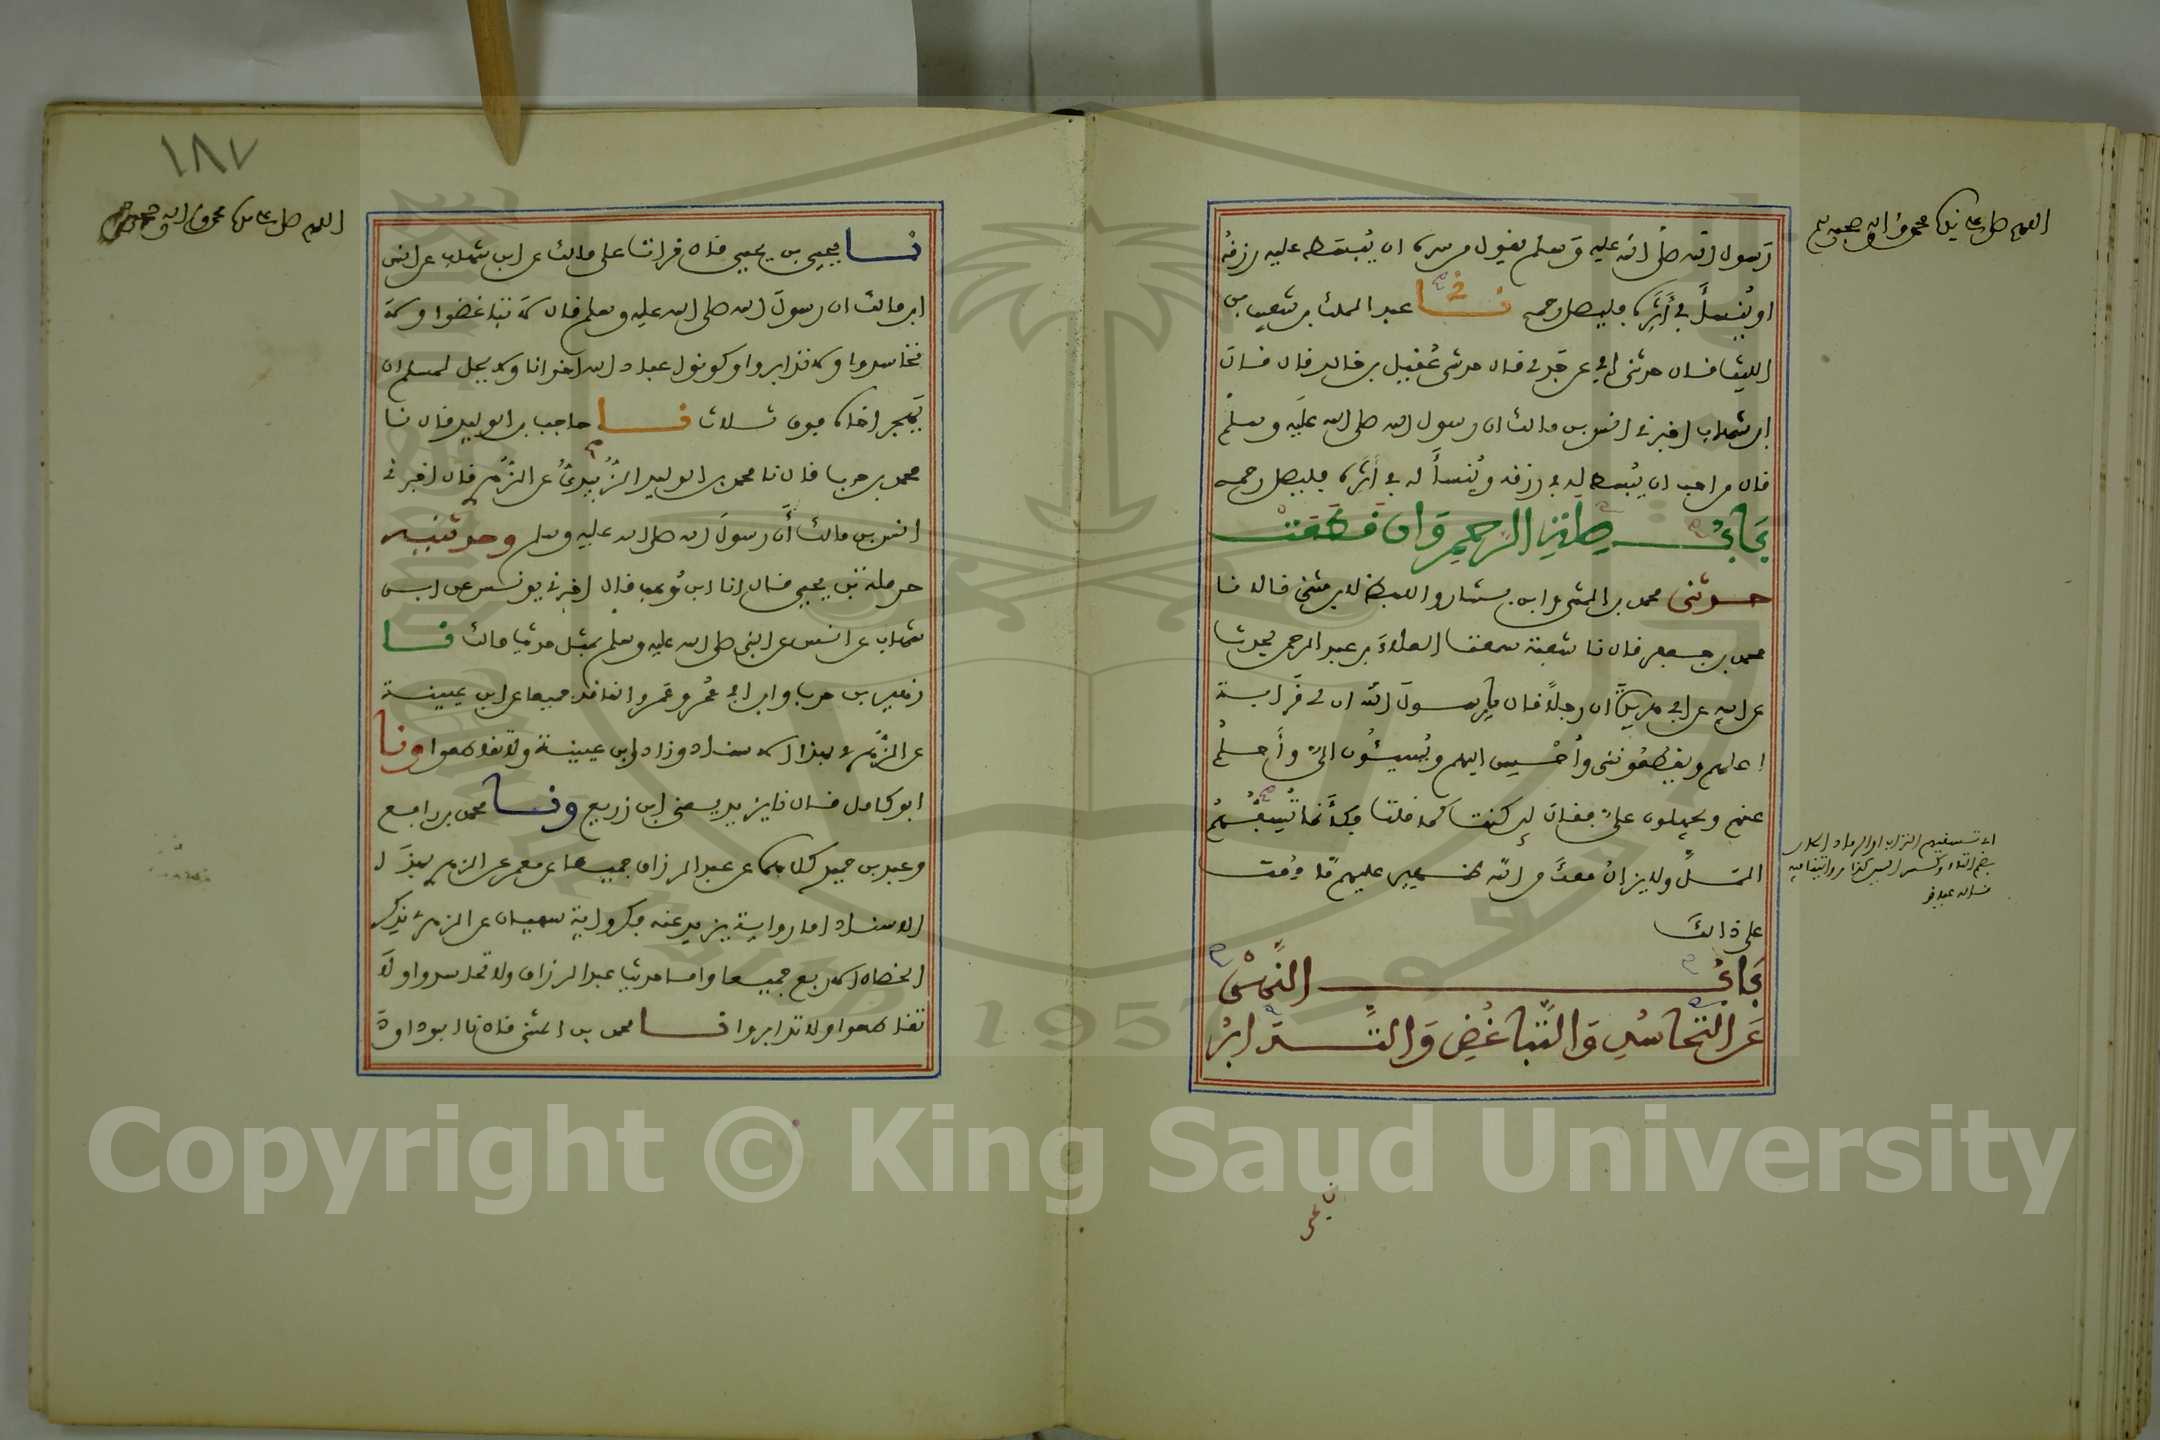 اللهم صل على نبينا محمد وءاله وصحبه
رسول الله صلى الله عليه وسلم يقول من سره ان يُبسَط عليه رزقُه
او يُنسأَ في أَثَرِه فليصل رحمه ثنا عبد الملك بن شعيب بن
الليث قال حدثني ابي عن جدي قال حدثني عُقيل بن خالد قال قال
ابن شهاب اخبرني انس بن مالك ان رسول الله صلى الله عليه وسلم
قال من احب ان يُبسط له في رزقه ويُنسأَ له في أَثَرِه فليصل رحمه
بَابُ صِلَةِ الرحمِ وَان قَطَعَتْ
حدثني محمد بن المثنى وابن بشار واللفظ لابن مثنى قالا نا
محمد بن جعفر قال نا شعبة سمعت العلاءَ بن عبد الرحمن يحدث
عن ابيه عن ابي هريرة ان رجلاً قال يا رسولَ الله ان لي قَرابة
اصلهم ويقطعُونني وأُحْسِن اليهم ويُسيئُون اليَّ وأَحلُمُ
عنهم ويجهلون عليَّ فقال لين كنت كما قلت فكأَنما تُسِفُّهُمُ
المَلَّ ولا يزالُ معكَ من الله ظهير عليهم ما دُمت
على ذالكَ
بَابُ النَّهْيِ
عَنِ التَّحَاسُدِ وَالتَّبَاغُضِ وَالتَّدَابُرِ
اي تسفهم التراب او الرماد الحار
بضم التاء وكسر السين
١٨٧
اللهم صل على نبينا محمد وءاله وصحبه
نا يحيى بن يحيى قال قرات على مالك عن ابن شهاب عن انس
ابن مالك ان رسولَ الله صلى الله عليه وسلم قال لا تباغضوا ولا
تحاسدوا ولا تدابروا وكونوا عباد الله اخوانا ولا يحل لمسلم ان
يَهجر اخاه فوق ثلاث نا حاجب بن الوليد قال نا
محمد بن حرب قال نا محمد بن الوليد الزُّبيدِيُّ عن الزُّهري قال اخبرني
انس بن مالك أنَّ رسولَ الله صلى الله عليه وسلم وحدثنيه
حرملة بن يحيى قال انا ابن وُهب قال اخبرني يونس عن ابن
شهاب عن انس عن النبي صلى الله عليه وسلم بمثل حديث مالك نا
زهير بن حرب وابن ابي عُمر وعَمرو الناقد جميعا عن ابن عيينة
عن الزُّهري بهذا الاسناد وزاد ابن عيينة ولا تقاطعوا ونا
ابو كامل قال نا يزيد يعني ابن زريع ونا محمد بن رافع
وعبد بن حميد كلاهما عن عبد الرزاق جميعا عن معمر عن الزهري بهذَا
الاسناد اما رواية يزيد عنه فكرواية سفيان عن الزهري يذكر
الخصال الاربع جميعا واما حديث عبد الرزاق ولا تحاسدوا ولاَ
تقاطعوا ولا تدابروا نا محمد بن المثنى قال نا ابو داود
Copyright © King Saud University
1957